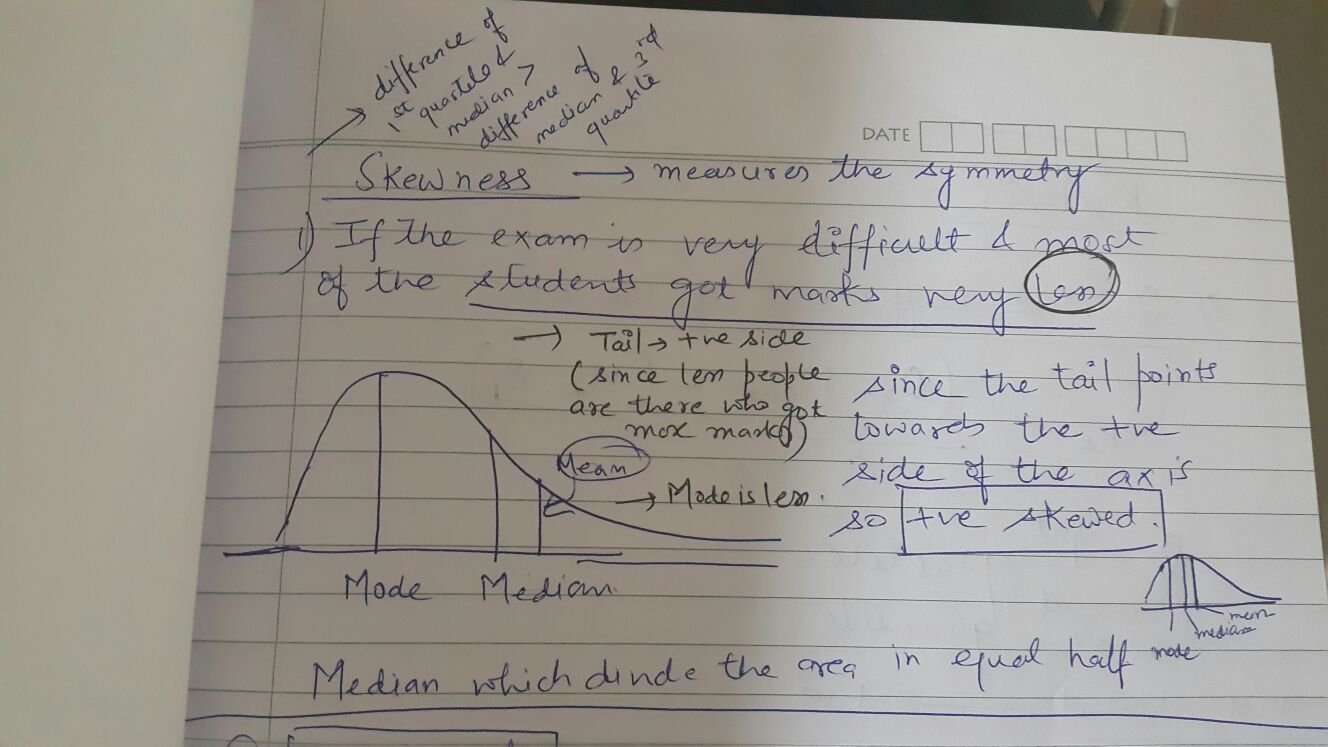 difference of
1st quartile &
median >
difference of
median & 3rd
quartile
DATE
Skewness → measures the symmetry
1) If the exam is very difficult & most
of the students got marks very less
→ Tail → +ve side
(since less people
are there who got
more marks)
since the tail points
towards the +ve
side of the axis
so +ve skewed.
Mean
→ Mode is less.
Mode Median
mean
median
mode
Median which divide the area in equal half